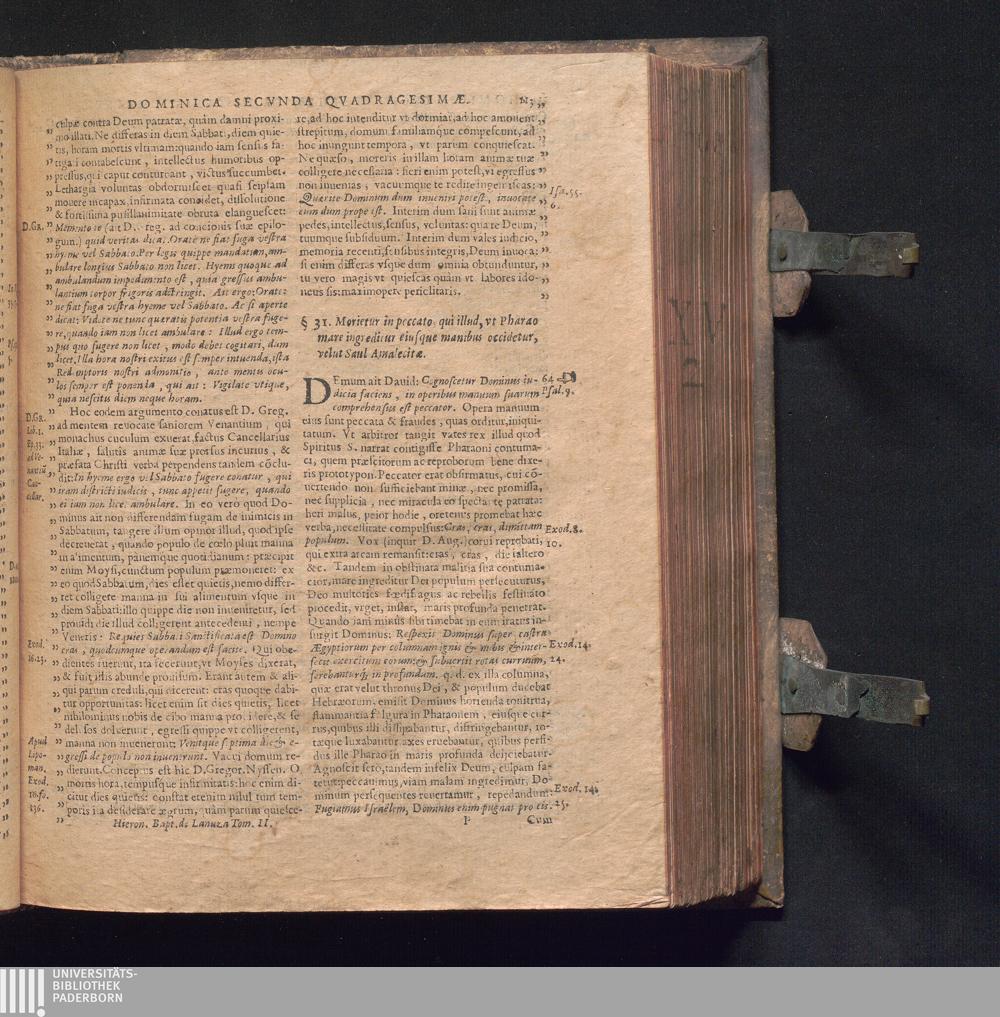 DOMINICA SECVNDA QVADRAGESIMÆ.
culpæ contra Deum patratæ, quàm damni proxi-
mo illati. Ne differas in diem Sabbati, diem quie-
tis, horam mortis vltimam: quando iam sensus fa-
tigati contabescunt, intellectus humoribus op-
pressus, qui caput conturbant, victus succumbet.
Lethargia voluntas obdormiscet quasi seipsam
mouere incapax, infirmata considet, dissolutione
& fortissima pusillanimitate obruta elanguescet:
D.GR.
Memento te (ait D. Greg. ad concionis suæ epilo-
gum.) quid veritas dicat. Orate ne fiat fuga vestra
hyeme vel Sabbato. Per legis quippe mandatum, am-
bulare longius Sabbato non licet. Hyems quoque ad
ambulandum impedimento est, quia gressus ambu-
lantium torpor frigoris adstringit. Ait ergo: Orate
ne fiat fuga vestra hyeme vel Sabbato. Ac si aperte
dicat: Videte ne tunc quæratis potentia vestra fuge-
re, quando iam non licet ambulare: Illud ergo tem-
pus quo fugere non licet, modo debet cogitari, dum
licet. Illa hora nostri exitus est semper intuenda, ista
Redemptoris nostri admonitio, ante mentis ocu-
los semper est ponenda, qui ait: Vigilate vtique,
quia nescitis diem neque horam.
D.GR.
Lib. 1.
Ep. 33.
ad Ve-
nantiū
Can-
cellar.
Hoc eodem argumento conatus est D. Greg.
ad mentem reuocare saniorem Venantium, qui
monachus cuculum exuerat, factus Cancellarius
Italiæ, salutis animæ suæ prorsus incurius, &
præfata Christi verba perpendens tandem cōclu-
dit: In hyeme ergo vel Sabbato fugere conatur, qui
iram districti iudicis, tunc appetit fugere, quando
ei iam non licet ambulare. In eo verò quod Do-
minus ait non differendam fugam de inimicis in
Sabbatum, tangere illum opinor illud, quod ipse
decreuerat, quando populo de cœlo pluit manna
in alimentum, panemque quotidianum: præcipit
enim Moysi, cunctum populum præmoneret: ex
eo quod Sabbatum, dies esset quietis, nemo differ-
ret colligere manna in sui alimentum vsque in
diem Sabbati: illo quippe die non inueniretur, sed
prouidi die illud colligerent antecedenti, nempe
Veneris: Requies Sabbati Sanctificata est Domino
Exod.
16.23.
cras, quodcumque operandum est facite. Qui obe-
dientes fuerunt, ita fecerunt, vt Moyses dixerat,
& fuit illis abunde prouisum. Erant autem & ali-
qui parum creduli, qui dicerent: cras quoque dabi-
tur opportunitas: licet enim sit dies quietis, licet
nihilominus nobis de cibo manna prouidere, & se
delusos doluerunt, egressi quippe vt colligerent,
Apud
Lipo-
man.
Exod.
16. fo.
236.
manna non inuenerunt: Venitque septima dies & e-
gressi de populo non inuenerunt. Vacui domum re-
dierunt. Conceptus est hic D. Gregor. Nyssen. O
mortis hora, tempusque infirmitatis: hoc enim di-
citur dies quietis: constat etenim nihil tum tem-
poris ita desiderare ægrum, quàm parum quiesce-
Hieron. Bapt. de Lanuza Tom. II.
re, ad hoc intenditur vt dormiat, ad hoc amouent
strepitum, domum familiamque compescunt, ad
hoc inungunt tempora, vt parum conquiescat.
Ne quæso, moreris in illam horam animæ tuæ
colligere necessaria: fieri enim potest, vt egressus
non inuenias, vacuumque te redire ingemiscas:
Isa. 55.
6.
Quærite Dominum dum inueniri potest, inuocate
eum dum prope est. Interim dum sani sunt animæ
pedes, intellectus, sensus, voluntas: quære Deum,
tuumque subsidium. Interim dum vales iudicio,
memoria recenti, sensibus integris, Deum inuoca:
si enim differas vsque dum omnia obtunduntur,
tu vero magis vt quiescas quàm vt labores ido-
neus sis: maximopere periclitaris.
§ 31. Morietur in peccato qui illud, vt Pharao
mare ingreditur eiusque manibus occidetur,
velut Saul Amalecitæ.
64
Psal. 9.
DEmum ait Dauid: Cognoscetur Dominus iu-
dicia faciens, in operibus manuum suarum
comprehensus est peccator. Opera manuum
eius sunt peccata & fraudes, quas orditur, iniqui-
tatum. Vt arbitror tangit vates rex illud quod
Spiritus S. narrat contigisse Pharaoni contuma-
ci, quem præscitorum ac reproborum bene dixe-
ris prototypon. Peccator erat obfirmatus, cui cō-
uertendo non sufficiebant minæ, nec promissa,
nec supplicia, nec miracula eo spectante patrata:
heri malus, peior hodie, oretenus promebat hæc
verba, necessitate compulsus: Cras, cras, dimittam
Exod. 8.
10.
populum. Vox (inquit D. Aug.) corui reprobati,
qui extra arcam remansit: cras, cras, die in altero
&c. Tandem in obstinata malitia sua contuma-
cior, mare ingreditur Dei populum persecuturus,
Deo multoties fœdifragus ac rebellis festinato
procedit, vrget, instat, maris profunda penetrat.
Quando iam minus sibi timebat in eum iratus in-
surgit Dominus: Respexit Dominus super castra
Exod. 14.
24.
Ægyptiorum per columnam ignis & nubis & inter-
fecit exercitum eorum: & subuertit rotas curruum,
ferebanturq; in profundum. q. d. ex illa columna,
quæ erat velut thronus Dei, & populum ducebat
Hebræorum, emisit Dominus horrenda tonitrua,
flammantia fulgura in Pharaonem, eiusque cur-
rus, quibus illi dissipabantur, distringebantur, ro-
tæque luxabantur axes eruebantur, quibus perfi-
dus ille Pharao in maris profunda deijciebatur.
Agnoscit sero, tandem infelix Deum, culpam fa-
tetur: peccauimus, viam malam ingredimur, Do-
minum persequentes reuertamur, repedandum:
Exod. 14.
25.
Fugiamus Israëlem, Dominus enim pugnat pro eis.
P
Cum
UNIVERSITÄTS-
BIBLIOTHEK
PADERBORN